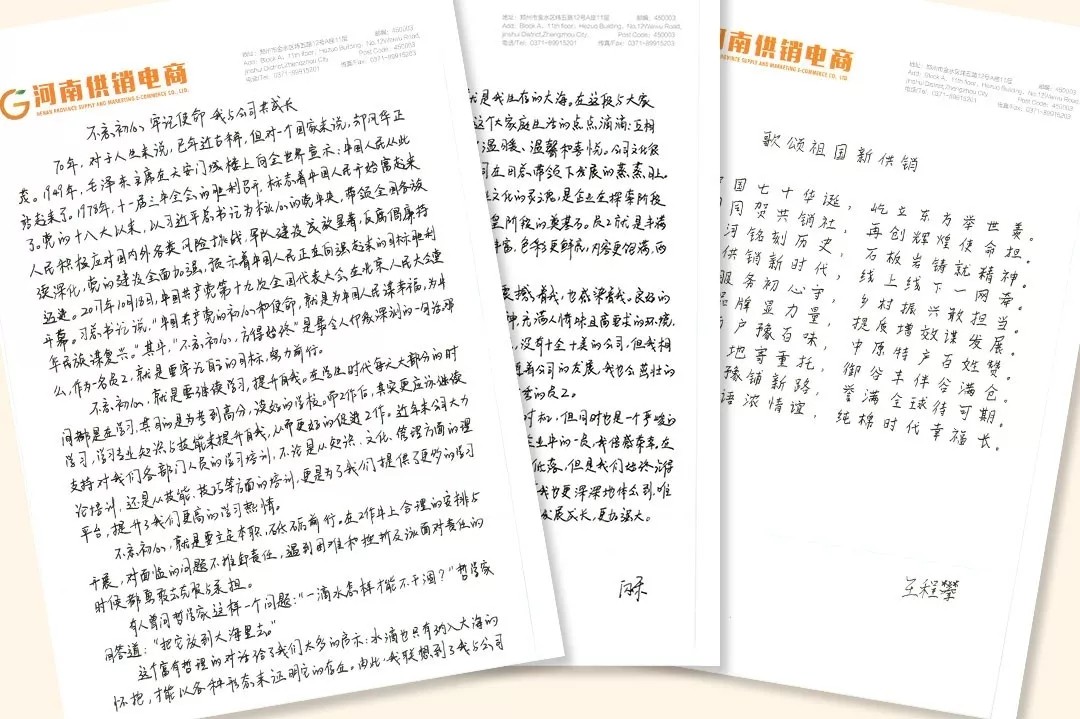 河南供销电商
HENAN PROVINCE SUPPLY AND MARKETING E-COMMERCE CO., LTD.
地址：郑州市金水区纬五路12号A座11层 邮编：450003
Add: Block A, 11th floor, Hezuo Building, No.12 Weiwu Road,
jinshui District, Zhengzhou City. Post Code: 450003
电话/Tel: 0371-89915201 传真/Fax: 0371-89915201
不忘初心 牢记使命 我与公司共成长
70年，对于人生来说，已年近古稀，但对一个国家来说，却风华正
茂。1949年，毛泽东主席在天安门城楼上向全世界宣示：中国人民从此
站起来了。1978年，十一届三中全会的胜利召开，标志着中国人民开始富起来
了。党的十八大以来，以习近平总书记为核心的党中央，带领全国各族
人民积极应对国内外各类风险挑战，军队建设成效显著，反腐倡廉持
续深化，党的建设全面加强，预示着中国人民正在向强起来的目标胜利
迈进。2017年10月18日，中国共产党第十九次全国代表大会在北京人民大会堂
开幕。习总书记说，“中国共产党的初心和使命，就是为中国人民谋幸福，为中
华民族谋复兴。”其中，“不忘初心，方得始终”是最令人印象深刻的一句话。那
么，作为一名员工，就是要牢记自己的目标，努力前行。
不忘初心，就是要继续学习，提升自我。在学生时代每天大部分的时
间都是在学习，其目的是为考到高分，读好的学校。而工作后，其实更应该继续
学习，学习专业知识与技能来提升自我，从而更好的促进工作。近年来公司大力
支持对我们各部门人员的学习培训，不论是从知识、文化、管理方面的理
论培训，还是从技能、技巧等方面的培训，更是为了我们提供了更多的学习
平台，提升了我们更高的学习热情。
不忘初心，就是要立足本职，砥砺前行。在工作中上合理的安排与
开展，对面临的问题不推卸责任，遇到困难和挫折及该面对责任的
时候都勇敢去克服与承担。
有人曾问哲学家这样一个问题：“一滴水怎样才能不干涸？”哲学家
回答道：“把它放到大海里去。”
这个富有哲理的对话给了我们太多的启示：水滴也只有纳入大海的
怀抱，才能以各种形态来证明它的存在。由此，我联想到了我与公司
地址：郑州市金水区纬五路12号A座11层 邮编：450003
Add: Block A, 11th floor, Hezuo Building, No.12 Weiwu Road,
jinshui District, Zhengzhou City. Post Code: 450003
电话/Tel: 0371-89915201 传真/Fax: 0371-89915201
就是我生存的大海。在这段与大家
这个大家庭生活的点点滴滴：互相
温暖、温馨和喜悦。公司文化很
司在田总带领下发展的蒸蒸日上。
文化的灵魂，是企业在探索阶段
阶段的奠基石。员工就是丰满
丰富，色彩更鲜亮，内容更饱满，而
撼着我，也感染着我。良好的
充满人情味且高要求的环境，
没有十全十美的公司，但我相
着公司的发展，我也会茁壮的
的员工。
时机，但同时也是一个严峻的
企业中的一员，我倍感幸幸，在
低落，但是我们始终记得
我也更深深地体会到，唯
发展成长，更加强大。
河南供销电商
PROVINCE SUPPLY AND MARKETING E-COMMERCE CO., LTD.
地址：郑州市金水区纬五路12号A座11层 邮编：450003
Add: Block A, 11th floor, Hezuo Building, No.12 Weiwu Road,
jinshui District, Zhengzhou City. Post Code: 450003
电话/Tel: 0371-89915201 传真/Fax: 0371-89915201
歌颂祖国新供销
国七十华诞，屹立东方举世羡。
同贺共销社，再创辉煌使命担。
河铭刻历史，石板岩铸就精神。
供销新时代，线上线下一网牵。
服务初心守，乡村振兴敢担当。
品牌显力量，提质增效谋发展。
户豫百味，中原特产百姓赞。
地寄重托，御谷丰伴谷满仓。
豫铺新路，誉满全球待可期。
语浓情谊，纯棉时代幸福长。
王程攀